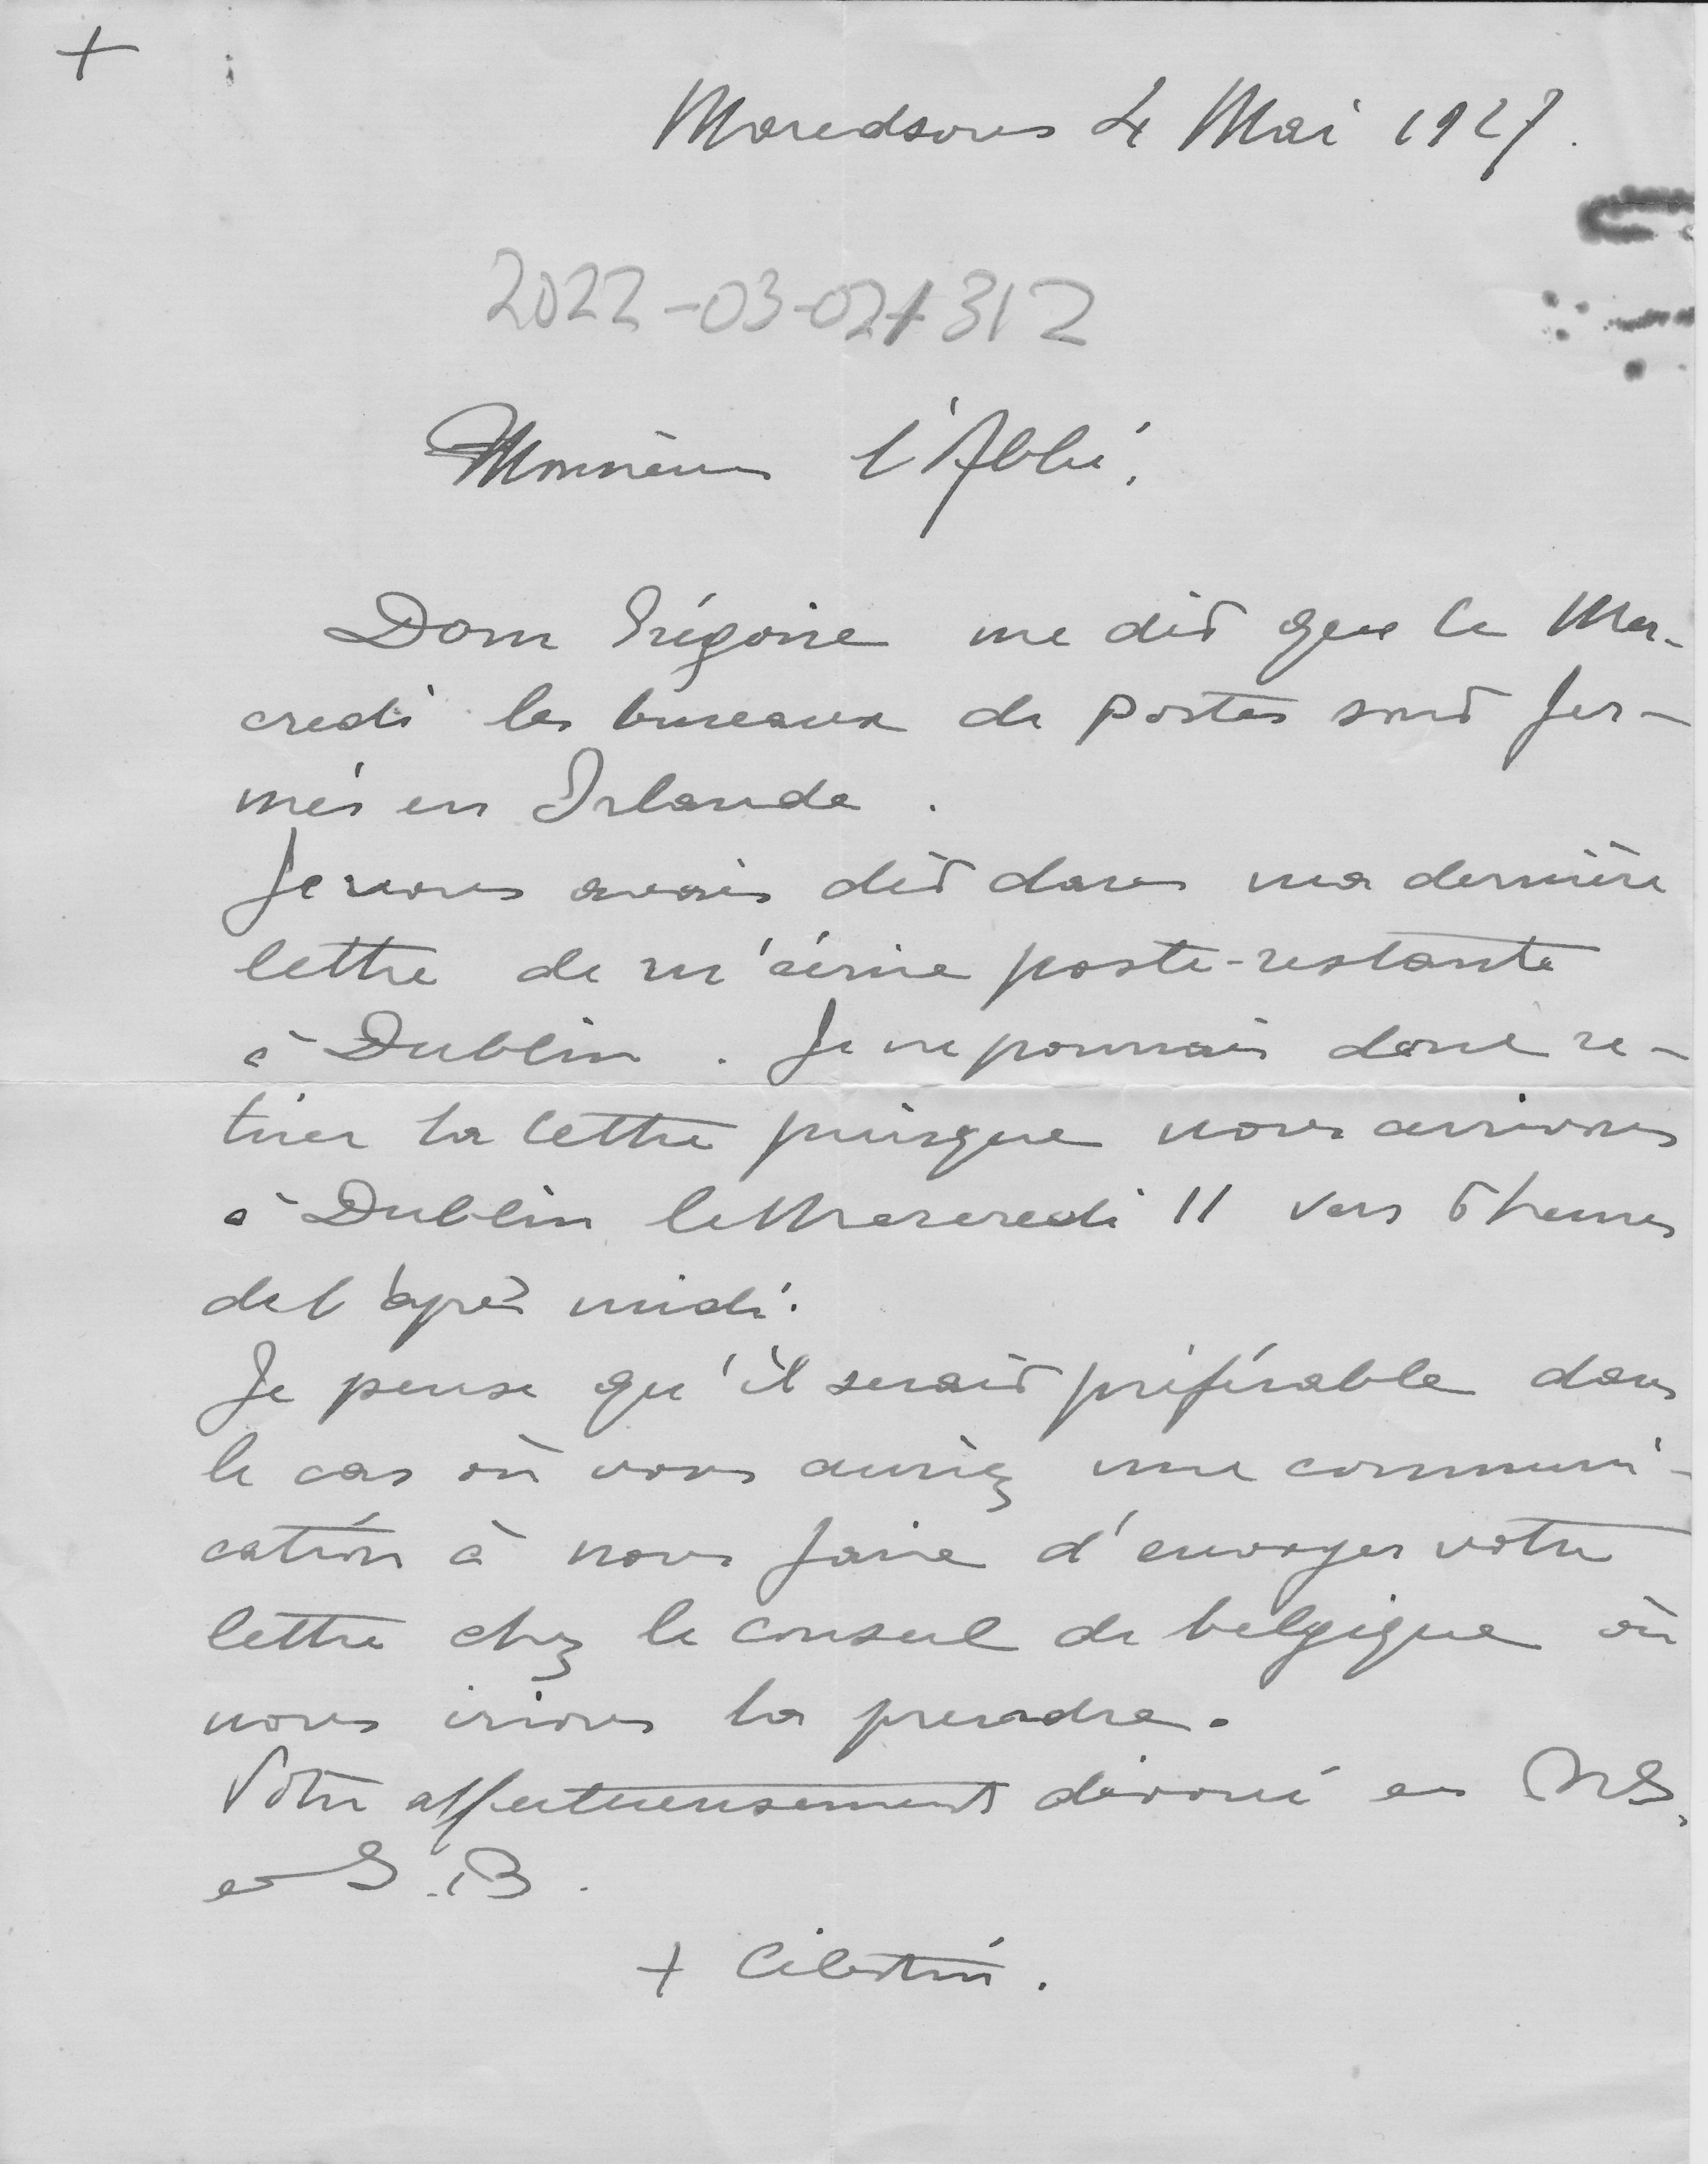 +
Maredsous 4 Mai 1927.
2022-03-02/312
Monsieur l'Abbé,
Dom Grégoire me dit que le Mer-
credi les bureaux de postes sont fer-
més en Irlande.
Je vous avais dit dans ma dernière
lettre de m'écrire poste-restante
à Dublin. Je ne pourrais donc re-
tirer la lettre puisque nous arrivons
à Dublin le Mercredi 11 vers 6 heures
de l'après midi.
Je pense qu'il serait préférable dans
le cas où vous auriez une communi-
cation à nous faire d'envoyer votre
lettre chez le consul de belgique où
nous irions la prendre.
Votre affectueusement dévoué en N.S.
et S.B.
+ Célestin.